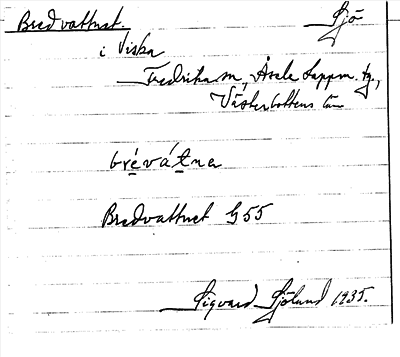 Bredvattnet. Sjö
i Viska
Fredrika sn, Åsele lappm. tg,
Västerbottens län
brèvátna
Bredvattnet G 55
Sigvard Sjölund 1935.